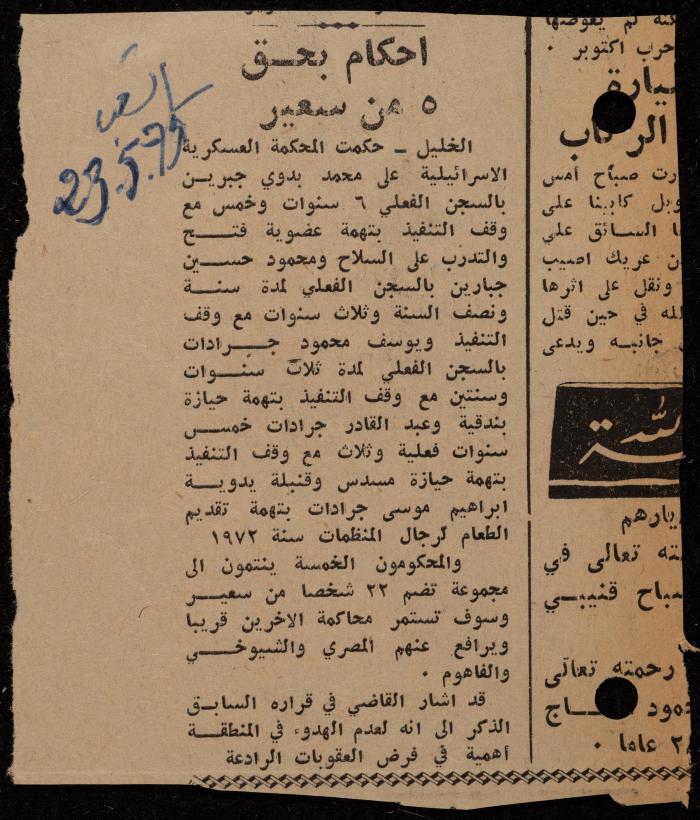 احكام بحق
٥ من سعير
الخليل – حكمت المحكمة العسكرية
الاسرائيلية على محمد بدوي جبرين
بالسجن الفعلي ٦ سنوات وخمس مع
وقف التنفيذ بتهمة عضوية فتح
والتدرب على السلاح ومحمود حسين
جبارين بالسجن الفعلي لمدة سنة
ونصف السنة وثلاث سنوات مع وقف
التنفيذ ويوسف محمود جرادات
بالسجن الفعلي لمدة ثلاث سنوات
وسنتين مع وقف التنفيذ بتهمة حيازة
بندقية وعبد القادر جرادات خمس
سنوات فعلية وثلاث مع وقف التنفيذ
بتهمة حيازة مسدس وقنبلة يدوية
ابراهيم موسى جرادات بتهمة تقديم
الطعام لرجال المنظمات سنة ١٩٧٢
والمحكومون الخمسة ينتمون الى
مجموعة تضم ٢٢ شخصا من سعير
وسوف تستمر محاكمة الاخرين قريبا
ويرافع عنهم المصري والشيوخي
والفاهوم ٠
قد اشار القاضي في قراره السابق
الذكر الى انه لعدم الهدوء في المنطقة
أهمية في فرض العقوبات الرادعة
الشعب
23.5.75
لم يعوضها
حرب اكتوبر ٠
صباح أمس
كابينا على
السائق علي
عريك اصيب
ونقل على اثرها
في حين قتل
جانبه ويدعى
تعالى في
قنيبي
رحمته تعالى
عاما ٠